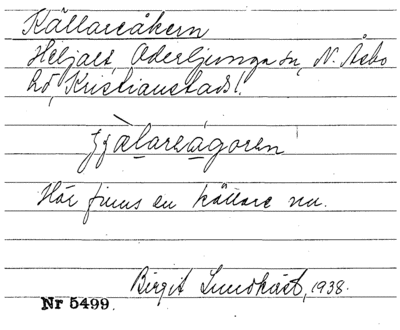 Källareåkern
Heljalt, Oderljunga sn, N. Åsbo
hd, Kristianstads l.
källareågoren
Här finns en källare nu.
Birgit Lundkvist, 1938.
Nr 5499.